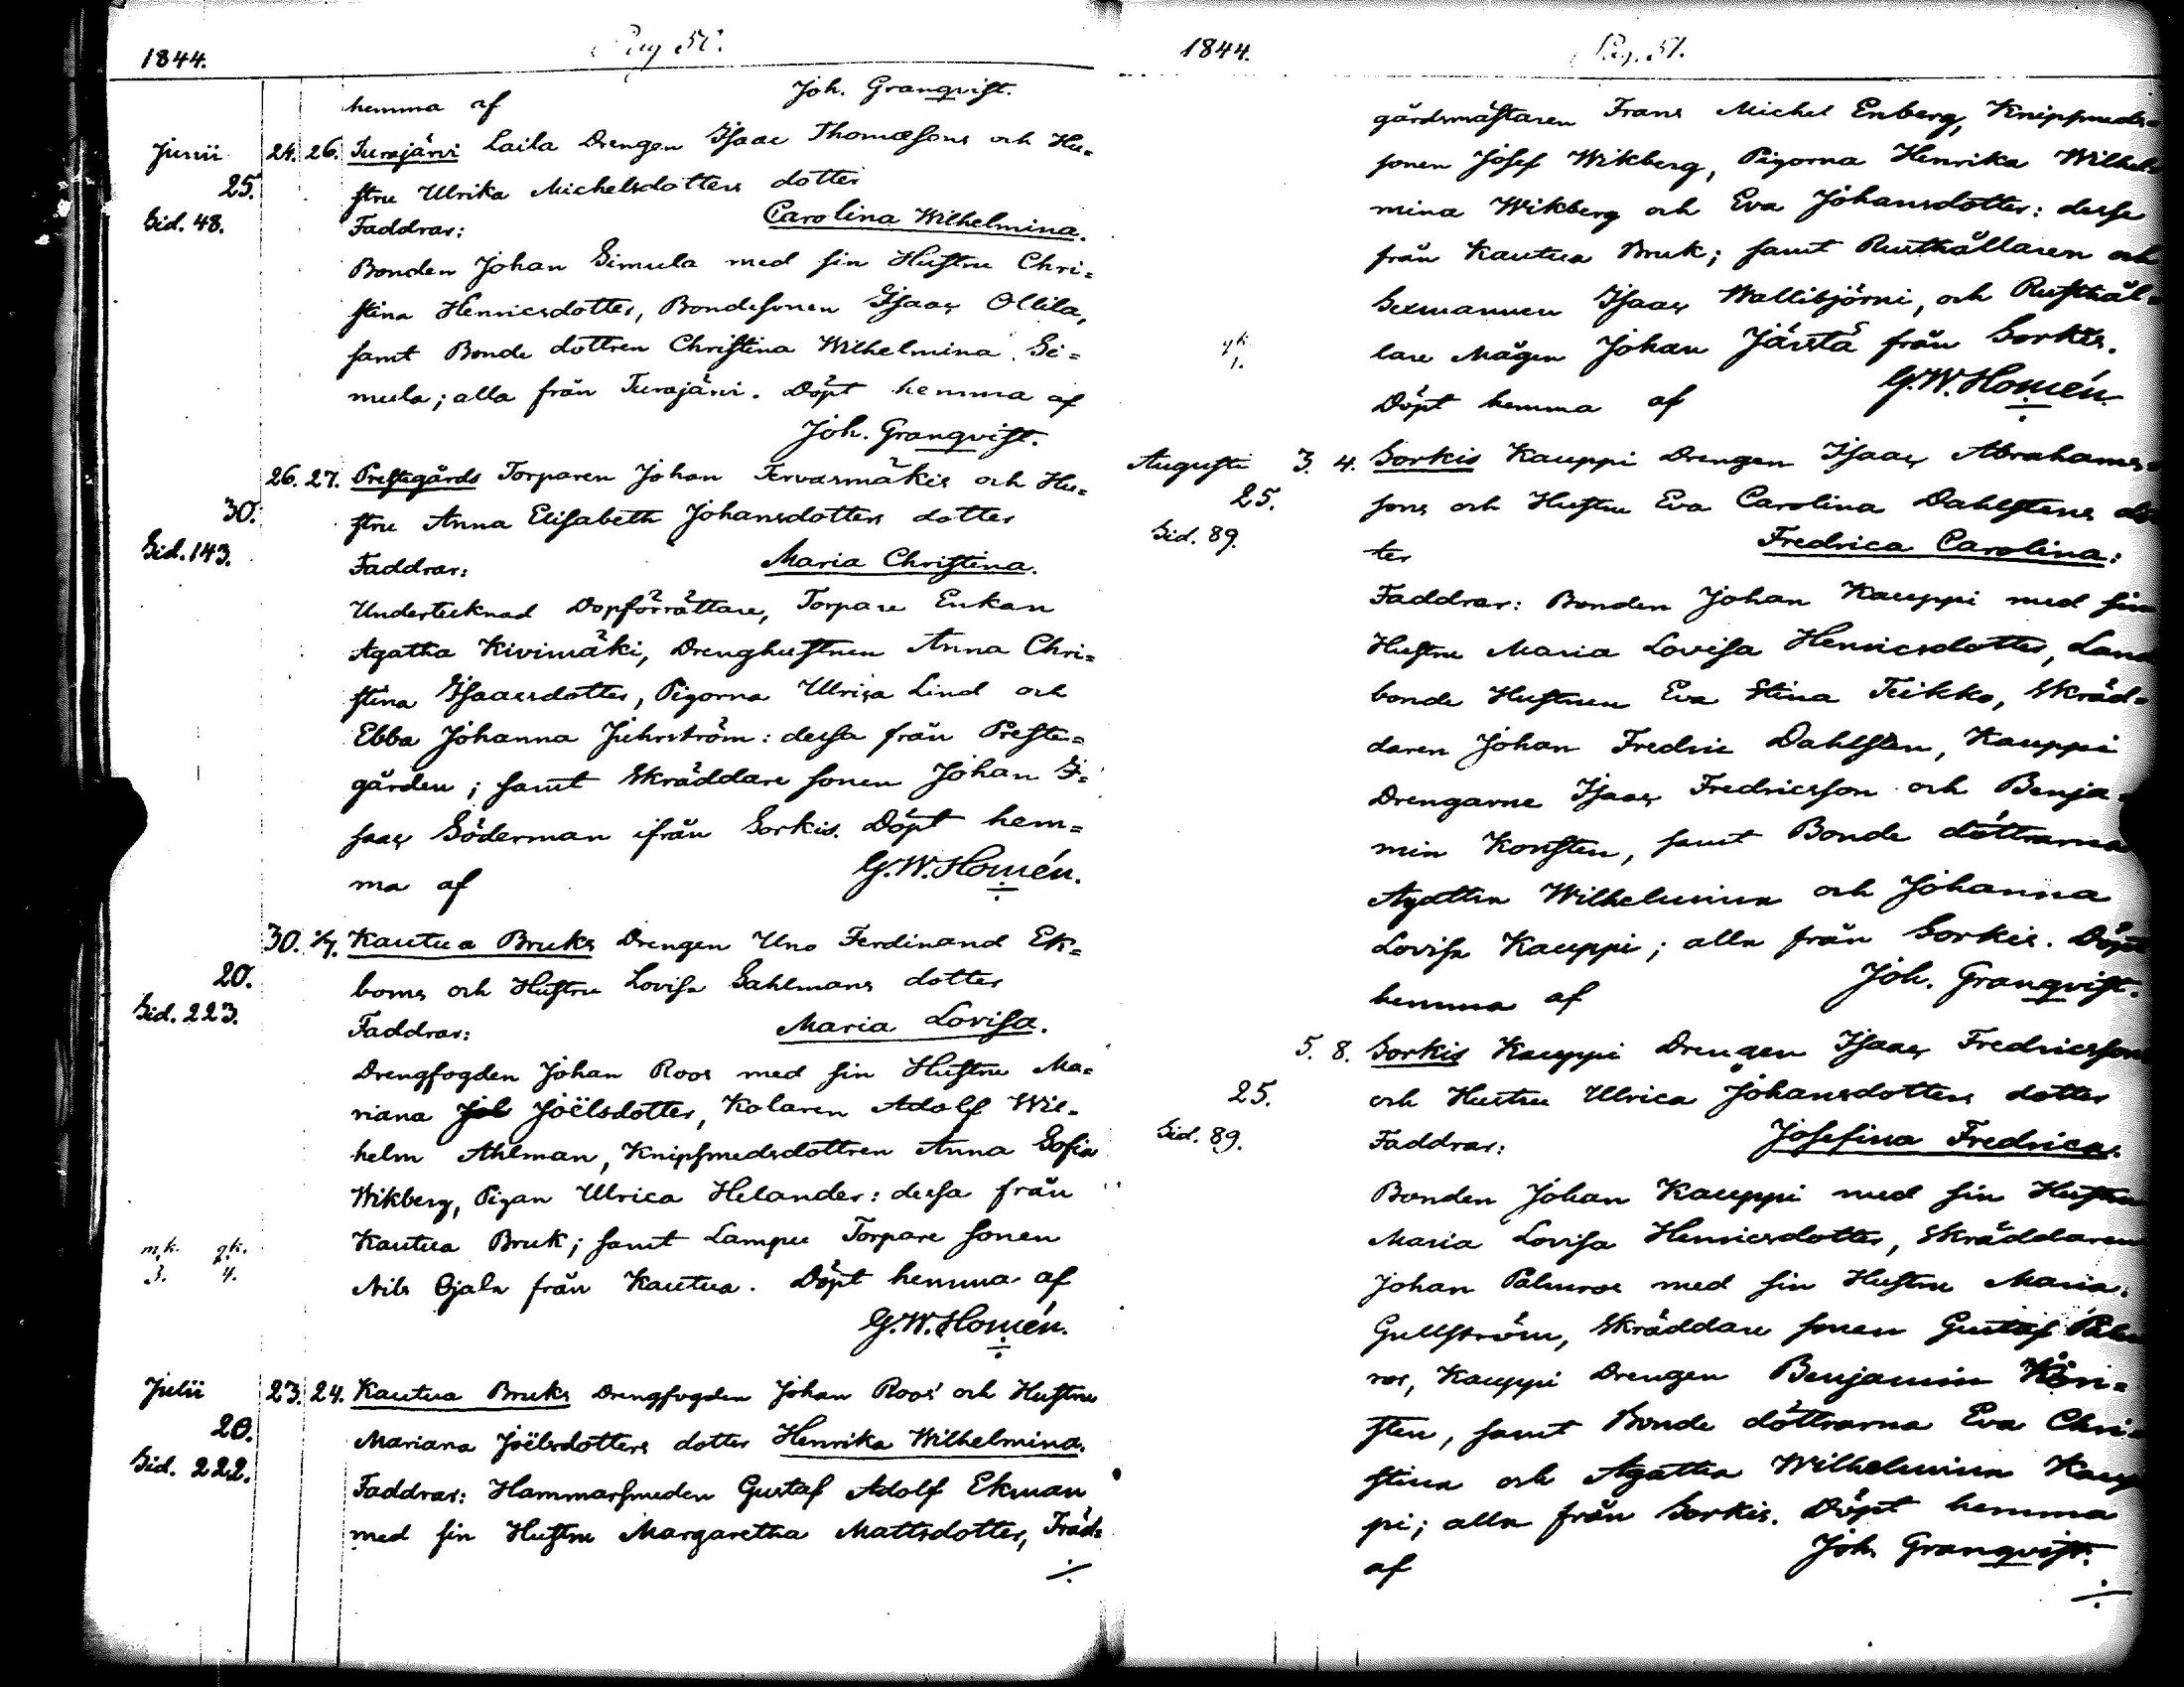 1844. Pag. 50.
hemma af Joh. Granqvist.
Junii 24. 26. Turajärvi Laila Drengen Isaac Thomæsons och Hu=
25. stru Ulrika Michelsdotters dotter
Sid. 48. Faddrar: Carolina Wilhelmina.
Bonden Johan Simula med sin Hustru Chri=
stina Henricsdotter, Bondesonen Isaac Ollila,
samt Bonde dottren Christina Wilhelmina Si=
mula; alla från Turajärvi. Döpt hemma af
Joh. Granqvist.
26. 27. Prestegårds Torparen Johan Tervasmäkis och Hu=
30. stru Anna Elisabeth Johansdotters dotter
Sid. 143. Faddrar: Maria Christina.
Undertecknad Dopförrättare, Torpare Enkan
Agatha Kivimäki, Drenghustrun Anna Chri=
stina Isaacsdotter, Pigorna Ulrica Lind och
Ebba Johanna Juhrström: dessa från Preste=
gården; samt Skräddare sonen Johan I=
saac Söderman ifrån Sorkis. Döpt hem=
ma af G. W. Homén.
30. 1/7. Kautua Bruks Drengen Uno Ferdinand Ek=
20. boms och Hustru Lovisa Sahlmans dotter
Sid. 223. Faddrar: Maria Lovisa.
Drengfogden Johan Roos med sin Hustru Ma=
riana Jol Joëlsdotter, Kolaren Adolf Wil=
helm Ahlman, Knipsmedsdottren Anna Sofia
Wikberg, Pigan Ulrica Helander: dessa från
m.k. q.k. Kautua Bruk; samt Lampu Torpare sonen
3. 4. Nils Ojala från Kautua. Döpt hemma af
G. W. Homén.
Julii 23. 24. Kautua Bruks Drengfogden Johan Roos' och Hustru
20. Mariana Joëlsdotters dotter Henrika Wilhelmina.
Sid. 222. Faddrar: Hammarsmeden Gustaf Adolf Ekman
med sin Hustru Margaretha Mattsdotter, Träd=
1844. Pag. 51.
gårdsmästaren Frans Michel Enberg, Knipsmeds=
sonen Josef Wikberg, Pigorna Henrika Wilhel=
mina Wikberg och Eva Johansdotter: dessa
från Kautua Bruk; samt Rusthållaren och
Sexmannen Isaac Wallibjörni, och Rusthål=
q.k. 1. lare Mågen Johan Järstä från Sorkis.
Döpt hemma af G. W. Homén.
Augusti 3. 4. Sorkis Kauppi Drengen Isaac Abrahams=
25. sons och Hustru Eva Carolina Dahlstens dot
Sid. 89. ter Fredrica Carolina:
Faddrar: Bonden Johan Kauppi med sin
Hustru Maria Lovisa Henricsdotter, Land
bonde Hustrun Eva Stina Teikko, Skräd=
daren Johan Fredric Dahlsten, Kauppi
Drengarne Isaac Fredricsson och Benja=
min Konsten, samt Bonde döttrarna
Agatha Wilhelmina och Johanna
Lovisa Kauppi; alla från Sorkis. Döpt
hemma af Joh. Granqvist.
5. 8. Sorkis Kauppi Drengen Isaac Fredricsson
25. och Hustru Ulrica Johansdotters dotter
Sid. 89. Faddrar: Josefina Fredrica.
Bonden Johan Kauppi med sin Hustru
Maria Lovisa Henricsdotter, Skräddaren
Johan Palmros med sin Hustru Maria
Gullström, Skräddare sonen Gustaf Palm
ros, Kauppi Drengen Benjamin Kon=
sten, samt Bonde döttrarna Eva Chri=
stina och Agatha Wilhelmina Kaup
pi; alla från Sorkis. Döpt hemma
af Joh. Granqvist.